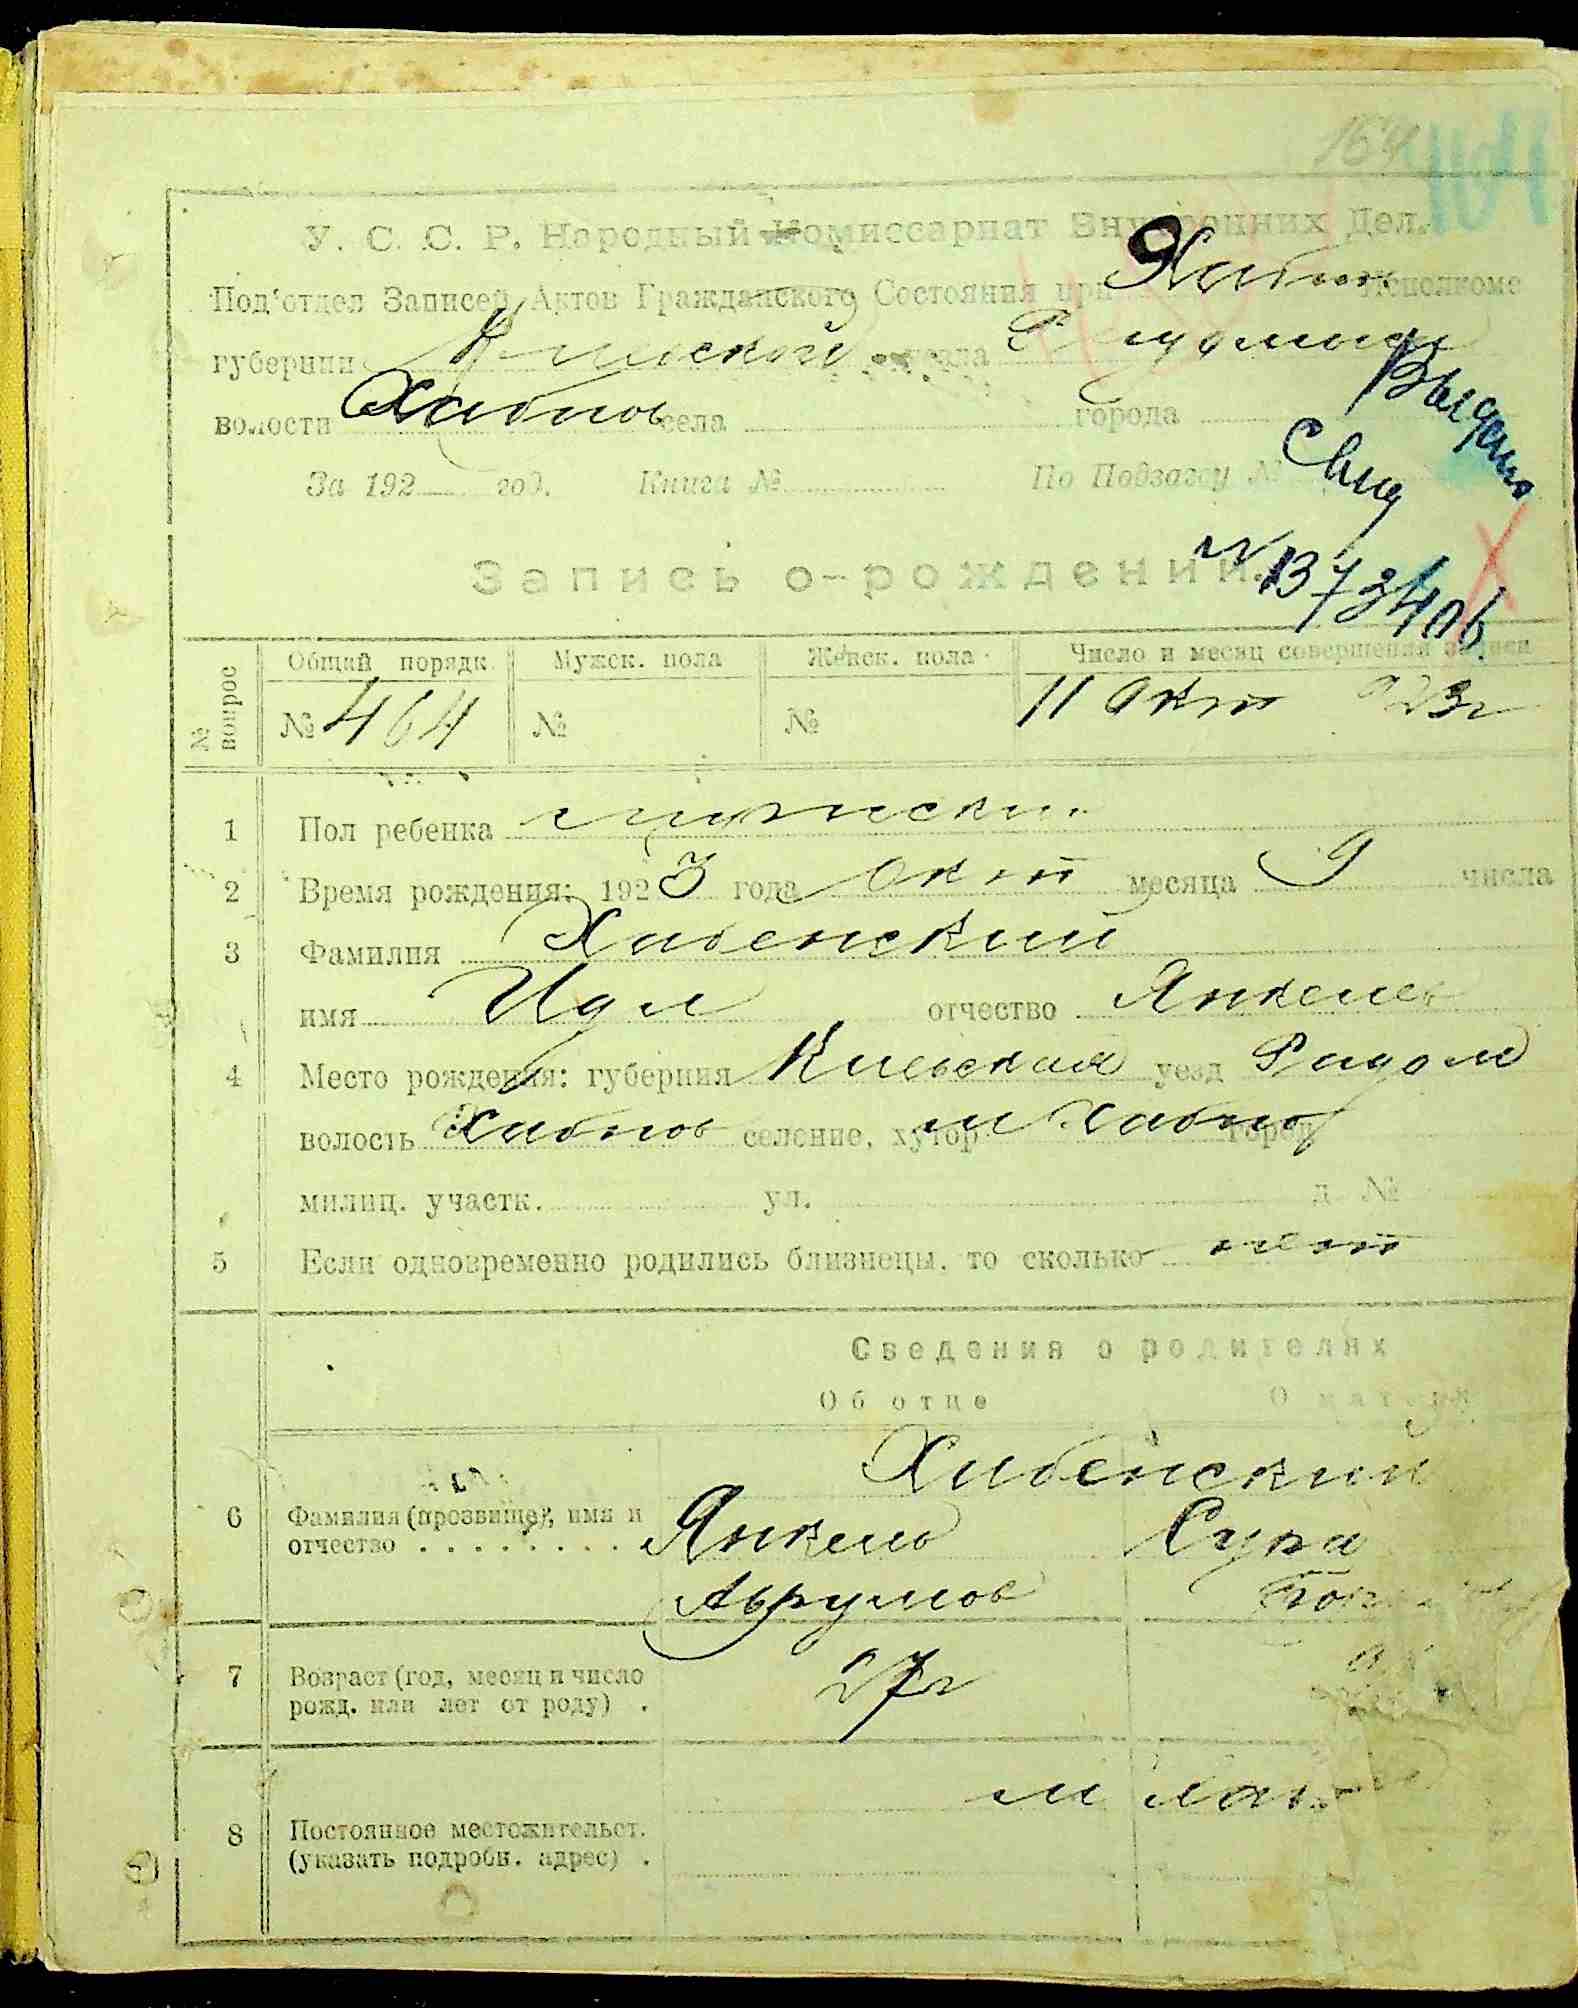 164 164
У. С. С. Р. Народный Комиссариат Внутренних Дел.
Под'отдел Записей Актов Гражданского Состояния при Хабно Исполкоме
губернии Киевской уезда
волости Хабнов села города
Выдано
Свид
За 192 год. Книга № По Подзагсу №
№
Запись о-рождении.
№ вопрос Общий порядк Мужск. пола Женск. пола Число и месяц совершения записи
№ 464 № № 11 Окт 923г
1 Пол ребенка мужски
2 Время рождения: 1923 года Окт месяца 9 числа
3 Фамилия Хабенский
имя Идл отчество Янкелев
4 Место рождения: губерния Киевская уезд Радом
волость Хабнов селение, хутор м Хабно город
милиц. участк. ул. д №
5 Если одновременно родились близнецы, то сколько нет
Сведения о родителях
Об отце О матери
Хабенский
6 Фамилия (прозвище), имя и отчество Янкель Сура
Аврумов
7 Возраст (год, месяц и число рожд. или лет от роду) . 27г
8 Постоянное местожительст. (указать подробн. адрес) . м